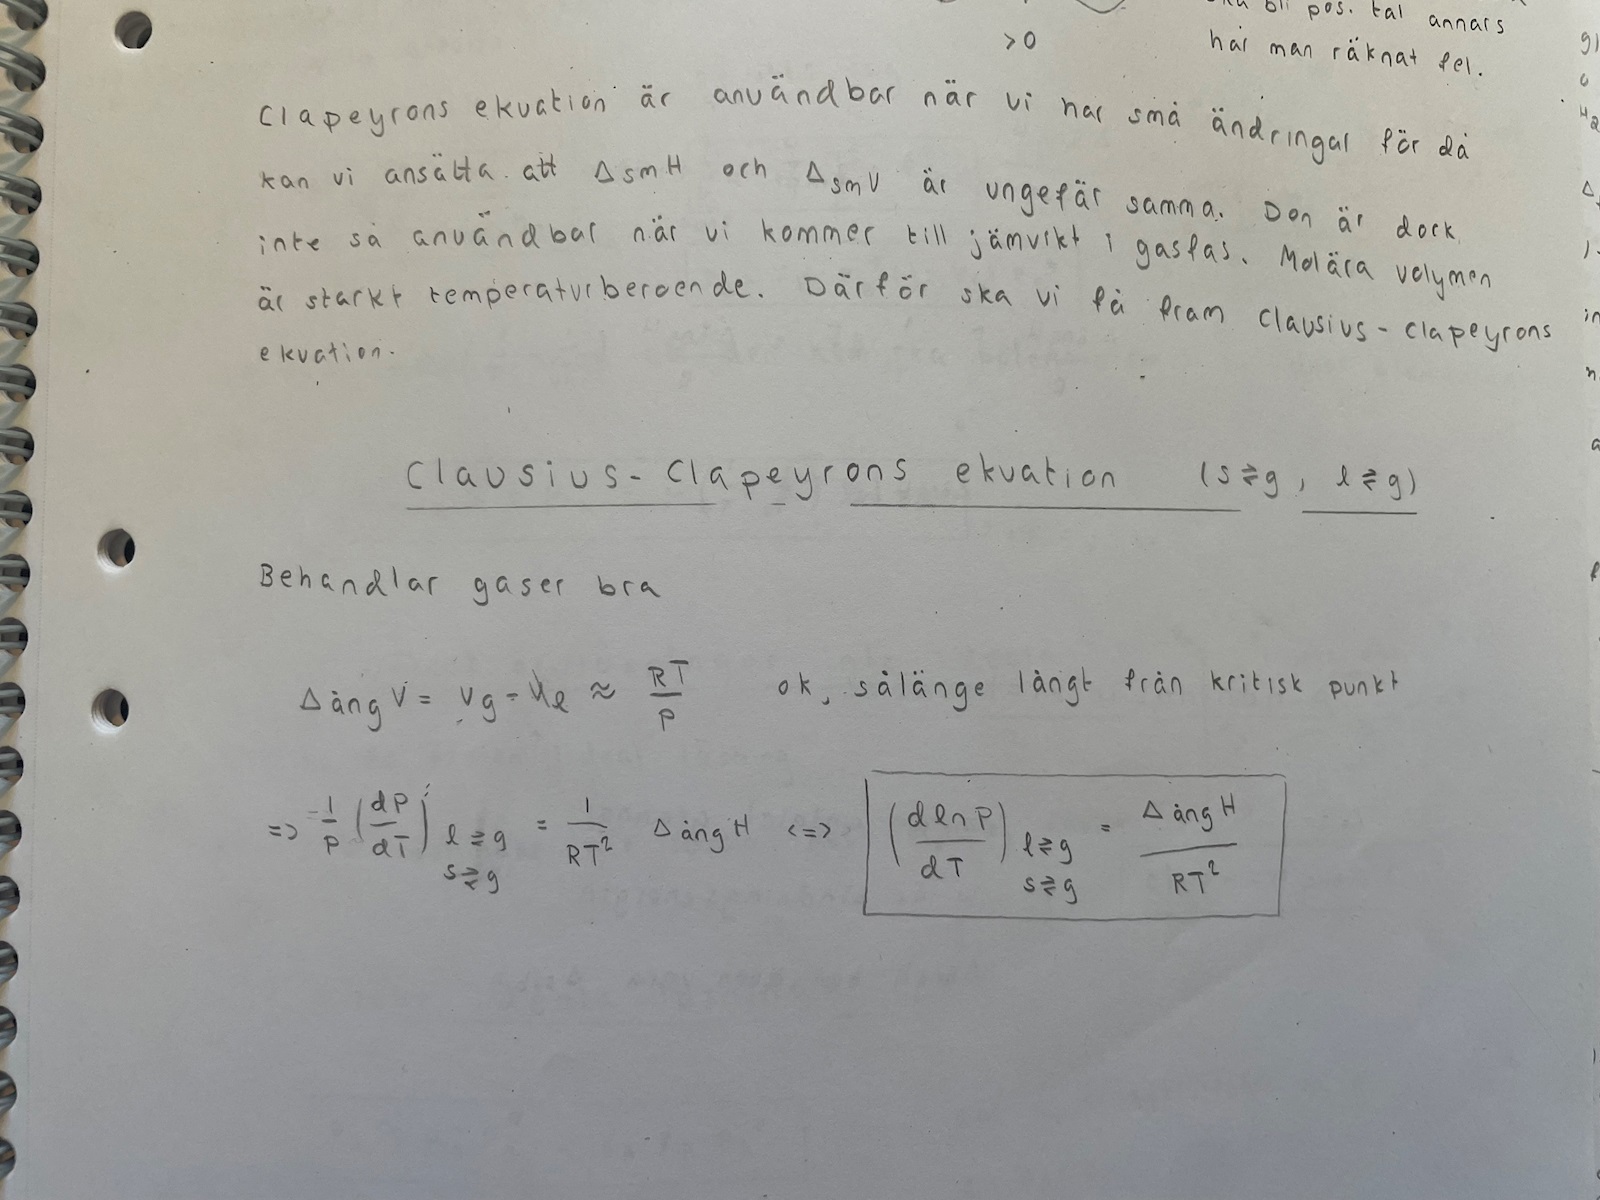 ska bli pos. tal annars
>0 har man räknat fel.
Clapeyrons ekvation är användbar när vi har små ändringar för då
kan vi ansätta att ΔsmH och ΔsmV är ungefär samma. Den är dock
inte så användbar när vi kommer till jämvikt i gasfas. Molära volymen
är starkt temperaturberoende. Därför ska vi få fram Clausius-Clapeyrons
ekvation.
Clausius-Clapeyrons ekvation (s⇄g, l⇄g)
Behandlar gaser bra
ΔångV = Vg - Vl ≈ RT/P ok, sålänge långt från kritisk punkt
=> 1/P (dP/dT) l⇄g s⇄g = 1/RT² ΔångH <=> (dlnP/dT) l⇄g s⇄g = ΔångH/RT²